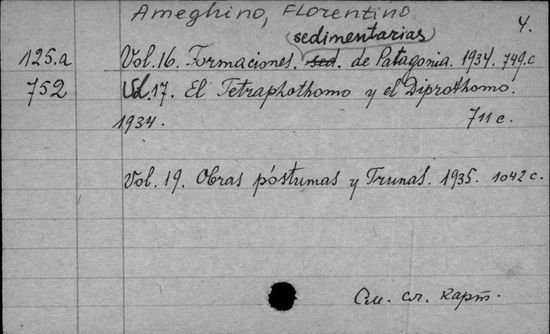 Ameghino, Florentino
4.
sedimentarias
125.a Vol. 16. Formaciones. sed. de Patagonia. 1934. 749.c
752 Vol. 17. El Tetraphothomo y el Diprothomo.
1934. 711 c.
Vol. 19. Obras póstumas y Trunas. 1935. 1042 c.
См. сл. карт.